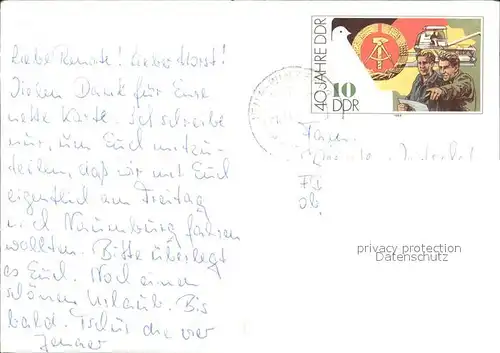 Liebe Renate! Lieber Horst!
Vielen Dank für Eure
nette Karte. Ich schreibe
nur, um Euch mitzu-
teilen, daß wir mit Euch
eigentlich am Freitag
nach Naumburg fahren
wollten. Bitte überlegt
es Euch. Noch einen
schönen Urlaub. Bis
bald. Tschüß die vier
Jenaer
40 JAHRE DDR
10
DDR
privacy protection
Datenschutz